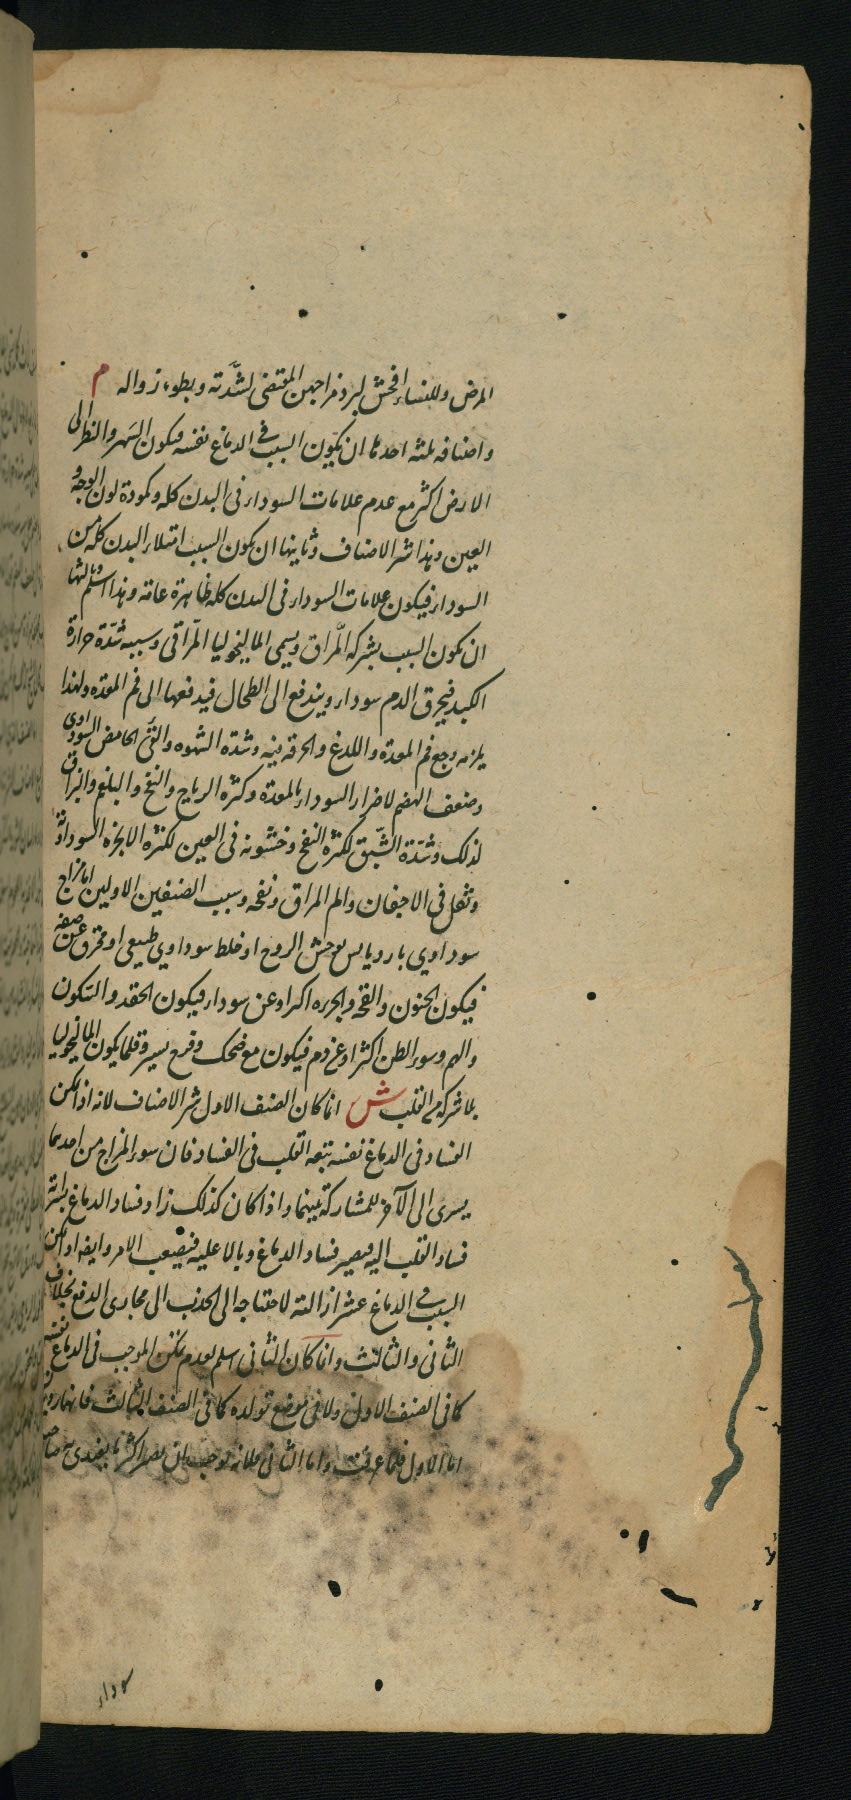 المرض وللنساء افحش لبرد مزاجهن المقتضى لشدّته وبطوء زواله م
واصنافه ثلثه احدها ان يكون السبب فى الدماغ نفسه فيكون السهر والنظر الى
الارض اكثر مع عدم علامات السوداء فى البدن كله وكمودة لون الوجه و
العين وهذا شر الاصناف وثانيها ان يكون السبب امتلاء البدن كله من
السوداء فيكون علامات السوداء فى البدن كله ظاهرة عامة وهذا اسلم وثالثها
ان يكون السبب بشركة المَراق ويسمى الماليخوليا المَراقى وسببه شدّة حرارة
الكبد فيحرق الدم سوداء ويندفع الى الطحال فيدفعها الى فم المعدة ولهذا
يلزمه وجع فم المعدة واللدغ والحرقه فيه وشدّة الشهوه والقئ الحامض السوداوى
وضعف الهضم لاضرار السوداء بالمعدة وكثرة الرياح والنفخ والبلغم والبزاق
لذلك وشدّة الشَبق لكثرة النفخ وخشونه فى العين لكثرة الابخرة السوداوية
وثقل فى الاجفان والم المراق ونفخه وسبب الصنفين الاولين اما مزاج
سوداوي بارد يابس يوحش الروح او خلط سوداوي طبيعى او محترق عن صفرا
فيكون الجنون والقحة والجرءه اكثر او عن سوداء فيكون الحقد والسكون
والهم وسوء الظن اكثر او عن دم فيكون مع ضحك وفرح يسير وقلما يكون الماليخوليا
بلا شركة مع القلب ش انما كان الصنف الاول شر الاصناف لانه اذا تمكن
الفساد فى الدماغ نفسه تبعه القلب فى الفساد فان سوء المزاج من احدهما
يسرى الى الآخر للمشاركة بينهما واذا كان كذلك زاد فساد الدماغ بسراية
فساد القلب اليه فيصير فساد الدماغ وبالا عليه فيصعب الامر وايضا اذا تمكن
السبب فى الدماغ عسر ازالته لاحتياجه الى الجذب الى مجارى الدفع بخلاف
الثانى والثالث وانما كان الثانى اسلم لعدم تمكن الموجب فى الدماغ نفسه
كما فى الصنف الاول ولا فى موضع تولده كما فى الصنف الثالث فانهما رديئان
اما الاول فلما عرفت واما الثانى فلانه يوجب ان يصير اكثر ما يغتذى به
سوداء